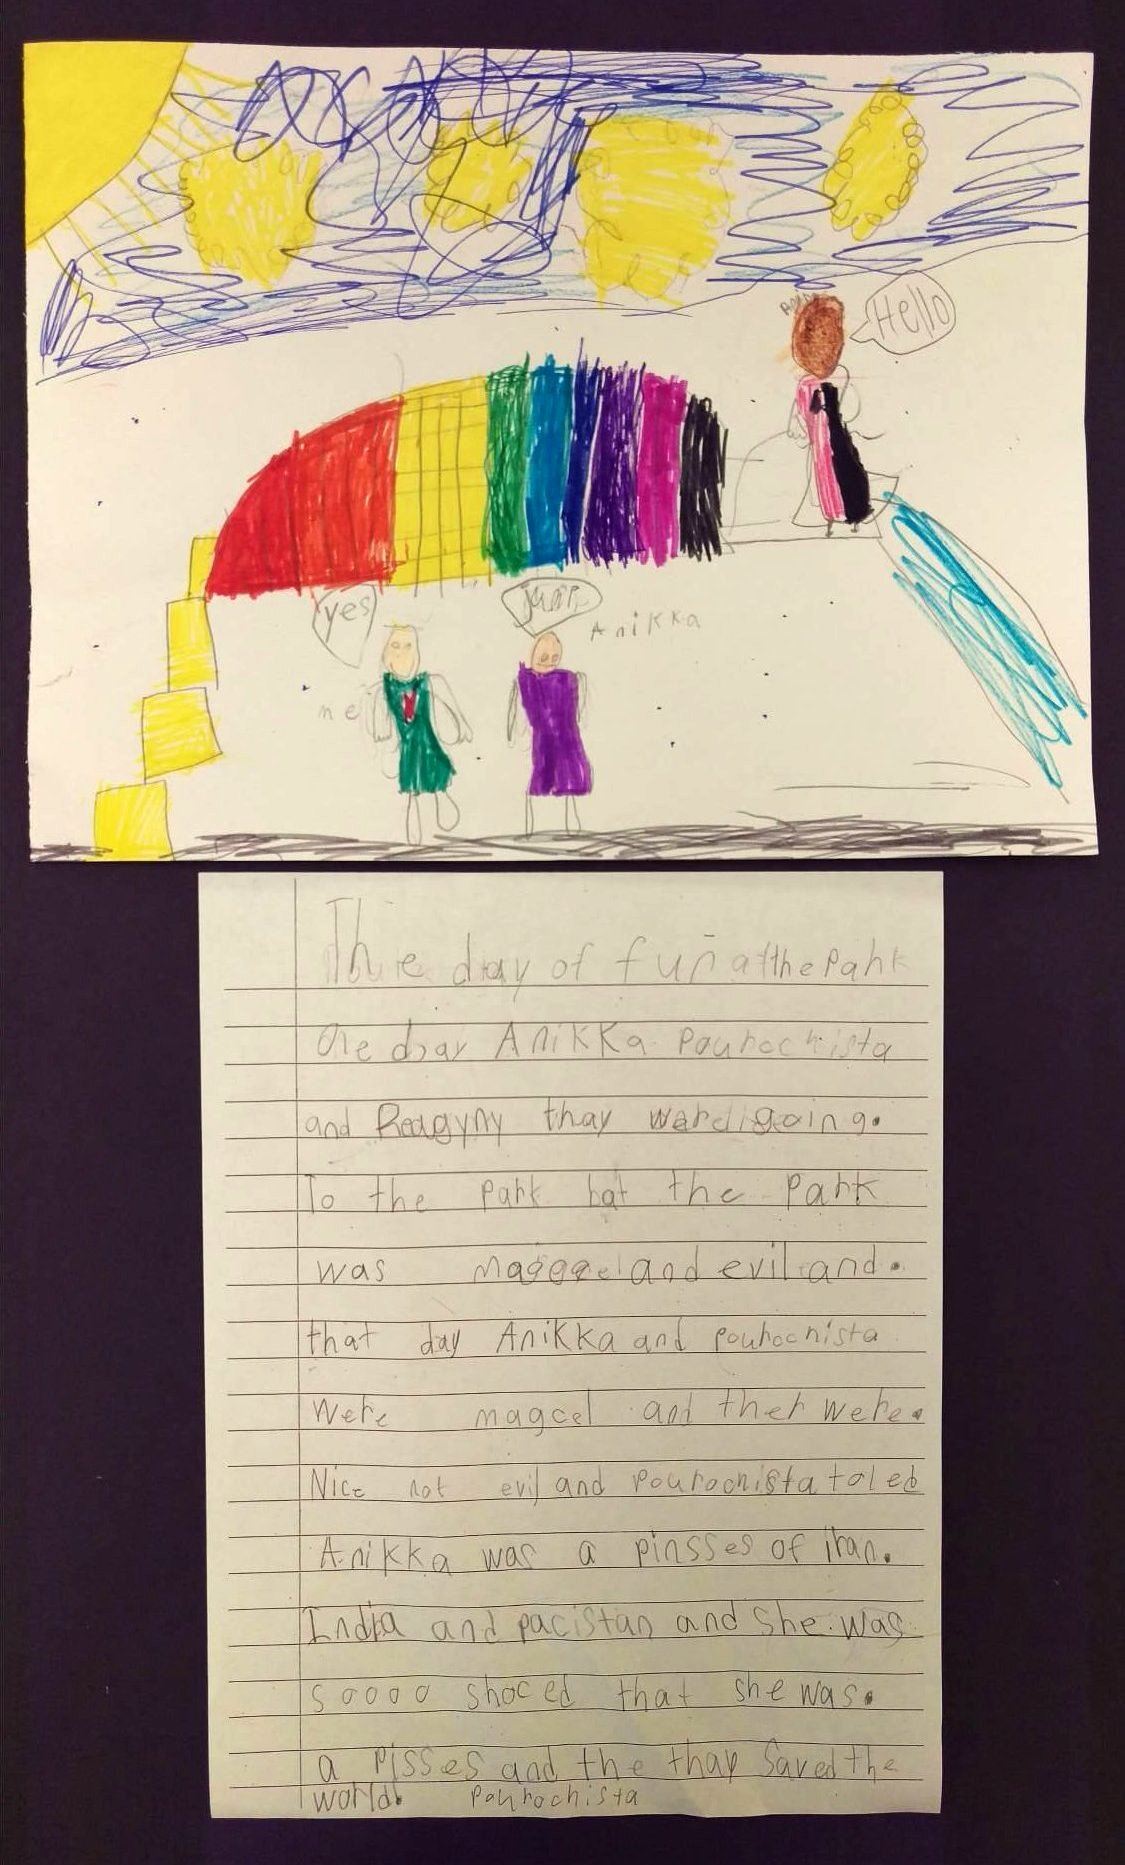 Hello
yes
Anikka
me
The day of fun at the Pahk
One day Anikka Pourochista
and Reagyny thay ward going.
To the Pahk bat the Pahk
was and evil and.
that day Anikka and pourochista
were magcel and ther were.
Nice not evil and Pourochista toled
Anikka was a pinsses of iran.
India and pacistan and she was
soooo shoced that she was.
a Pisses and the thay Saved the
world. Pourochista